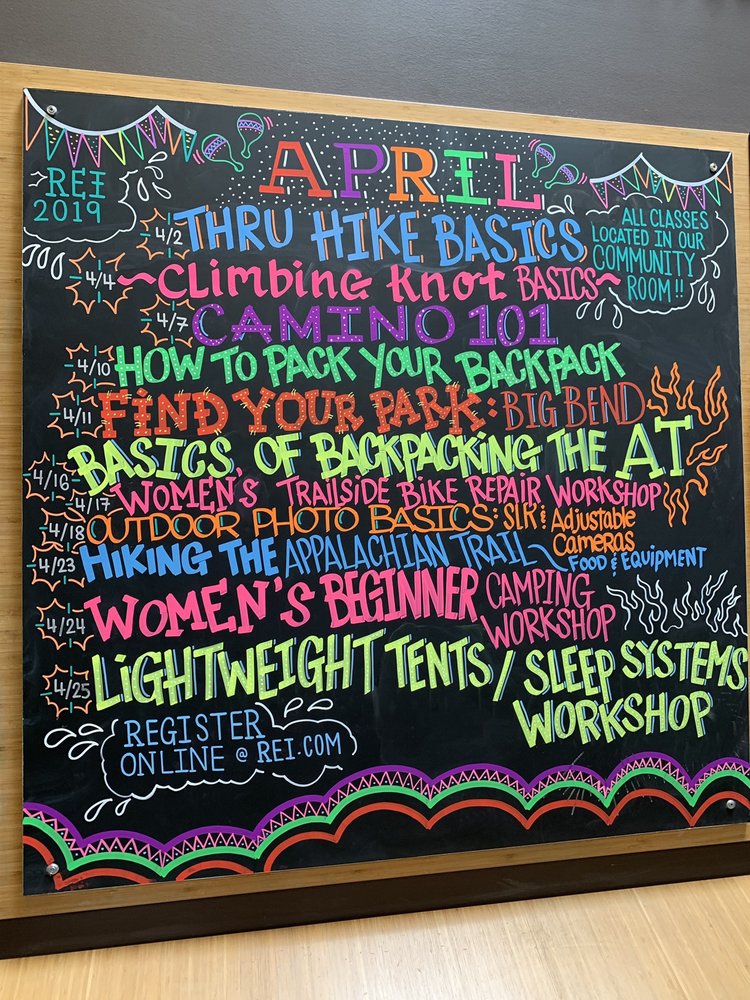 APRIL
REI
2019
ALL CLASSES
LOCATED IN OUR
COMMUNITY
ROOM!!
4/2 THRU HIKE BASICS
4/4 ~Climbing Knot BASICS~
4/7 CAMINO 101
4/10 HOW TO PACK YOUR BACKPACK
4/11 FIND YOUR PARK: BIG BEND
4/16 BASICS OF BACKPACKING THE AT
4/17 WOMEN'S TRAILSIDE BIKE REPAIR WORKSHOP
4/18 OUTDOOR PHOTO BASICS: SLR & Adjustable
Cameras
4/23 HIKING THE APPALACHIAN TRAIL~
FOOD & EQUIPMENT
4/24 WOMEN'S BEGINNER CAMPING
WORKSHOP
4/25 LIGHTWEIGHT TENTS / SLEEP SYSTEMS
WORKSHOP
REGISTER
ONLINE @ REI.COM